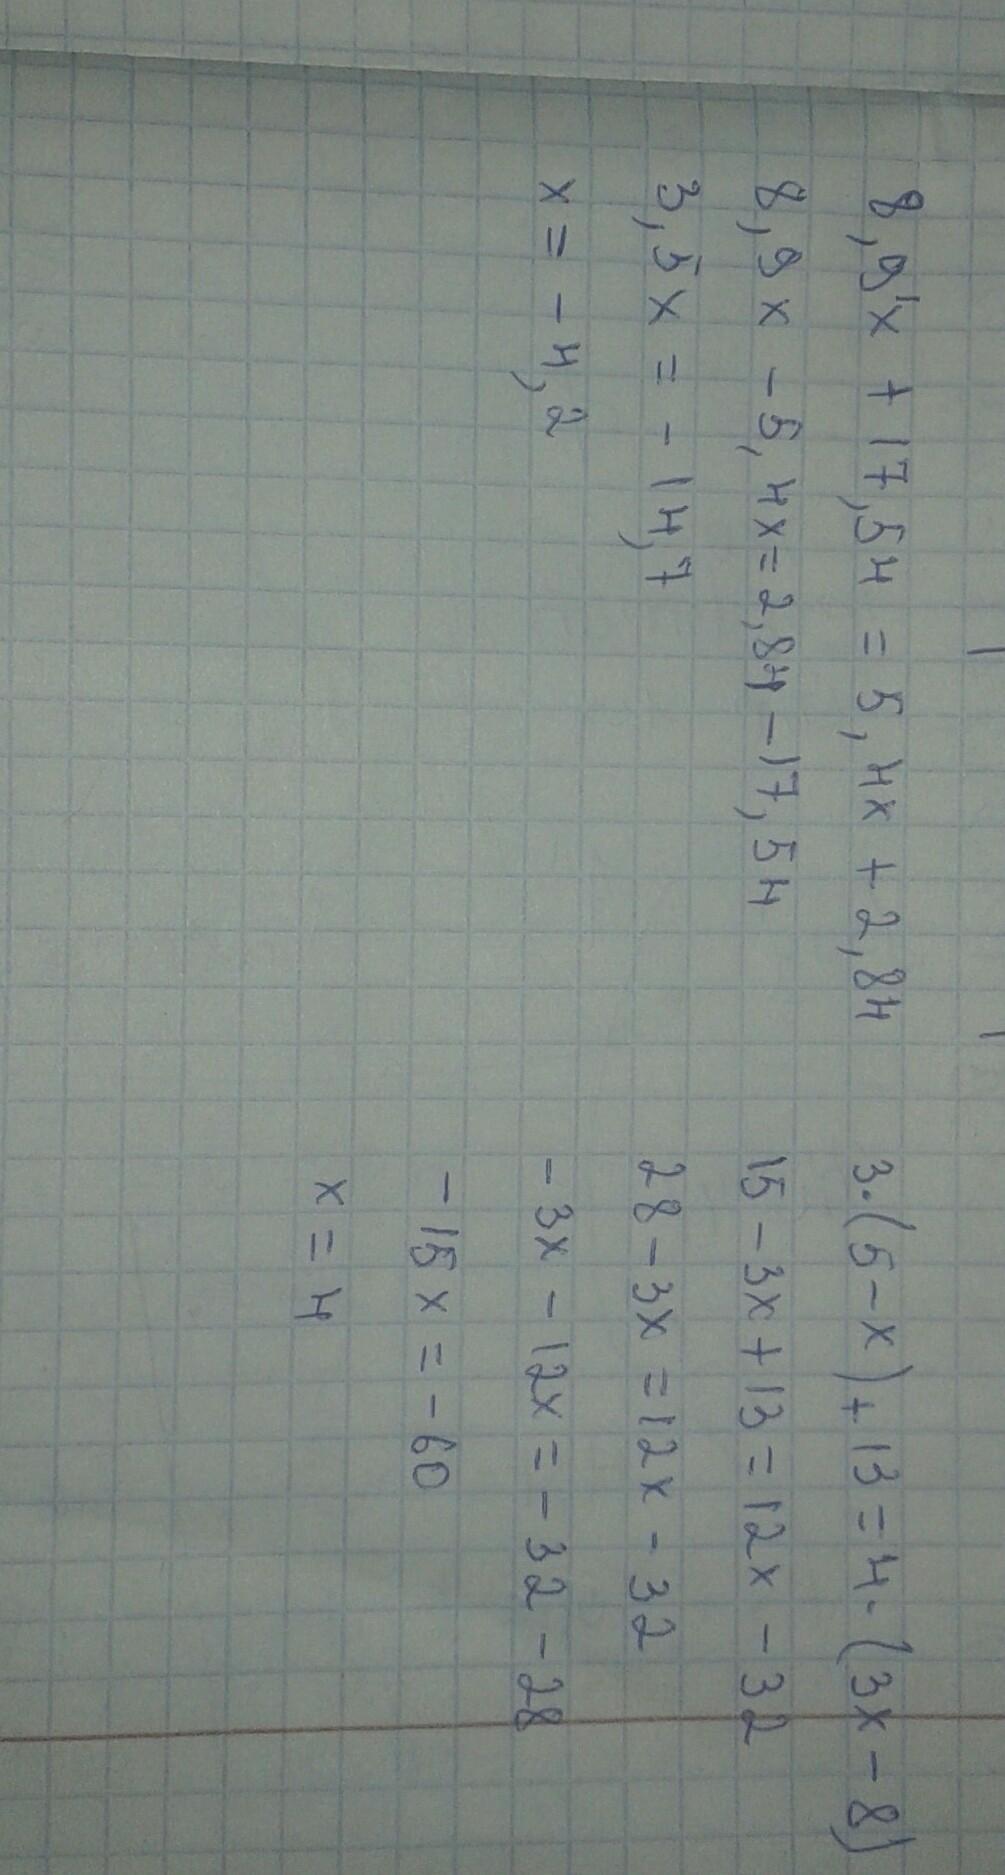 8,9x + 17,54 = 5,4x + 2,84
8,9x - 5,4x = 2,84 - 17,54
3,5x = - 14,7
x = - 4,2
3·(5-x) + 13 = 4·(3x - 8)
15 - 3x + 13 = 12x - 32
28 - 3x = 12x - 32
- 3x - 12x = - 32 - 28
- 15x = - 60
x = 4